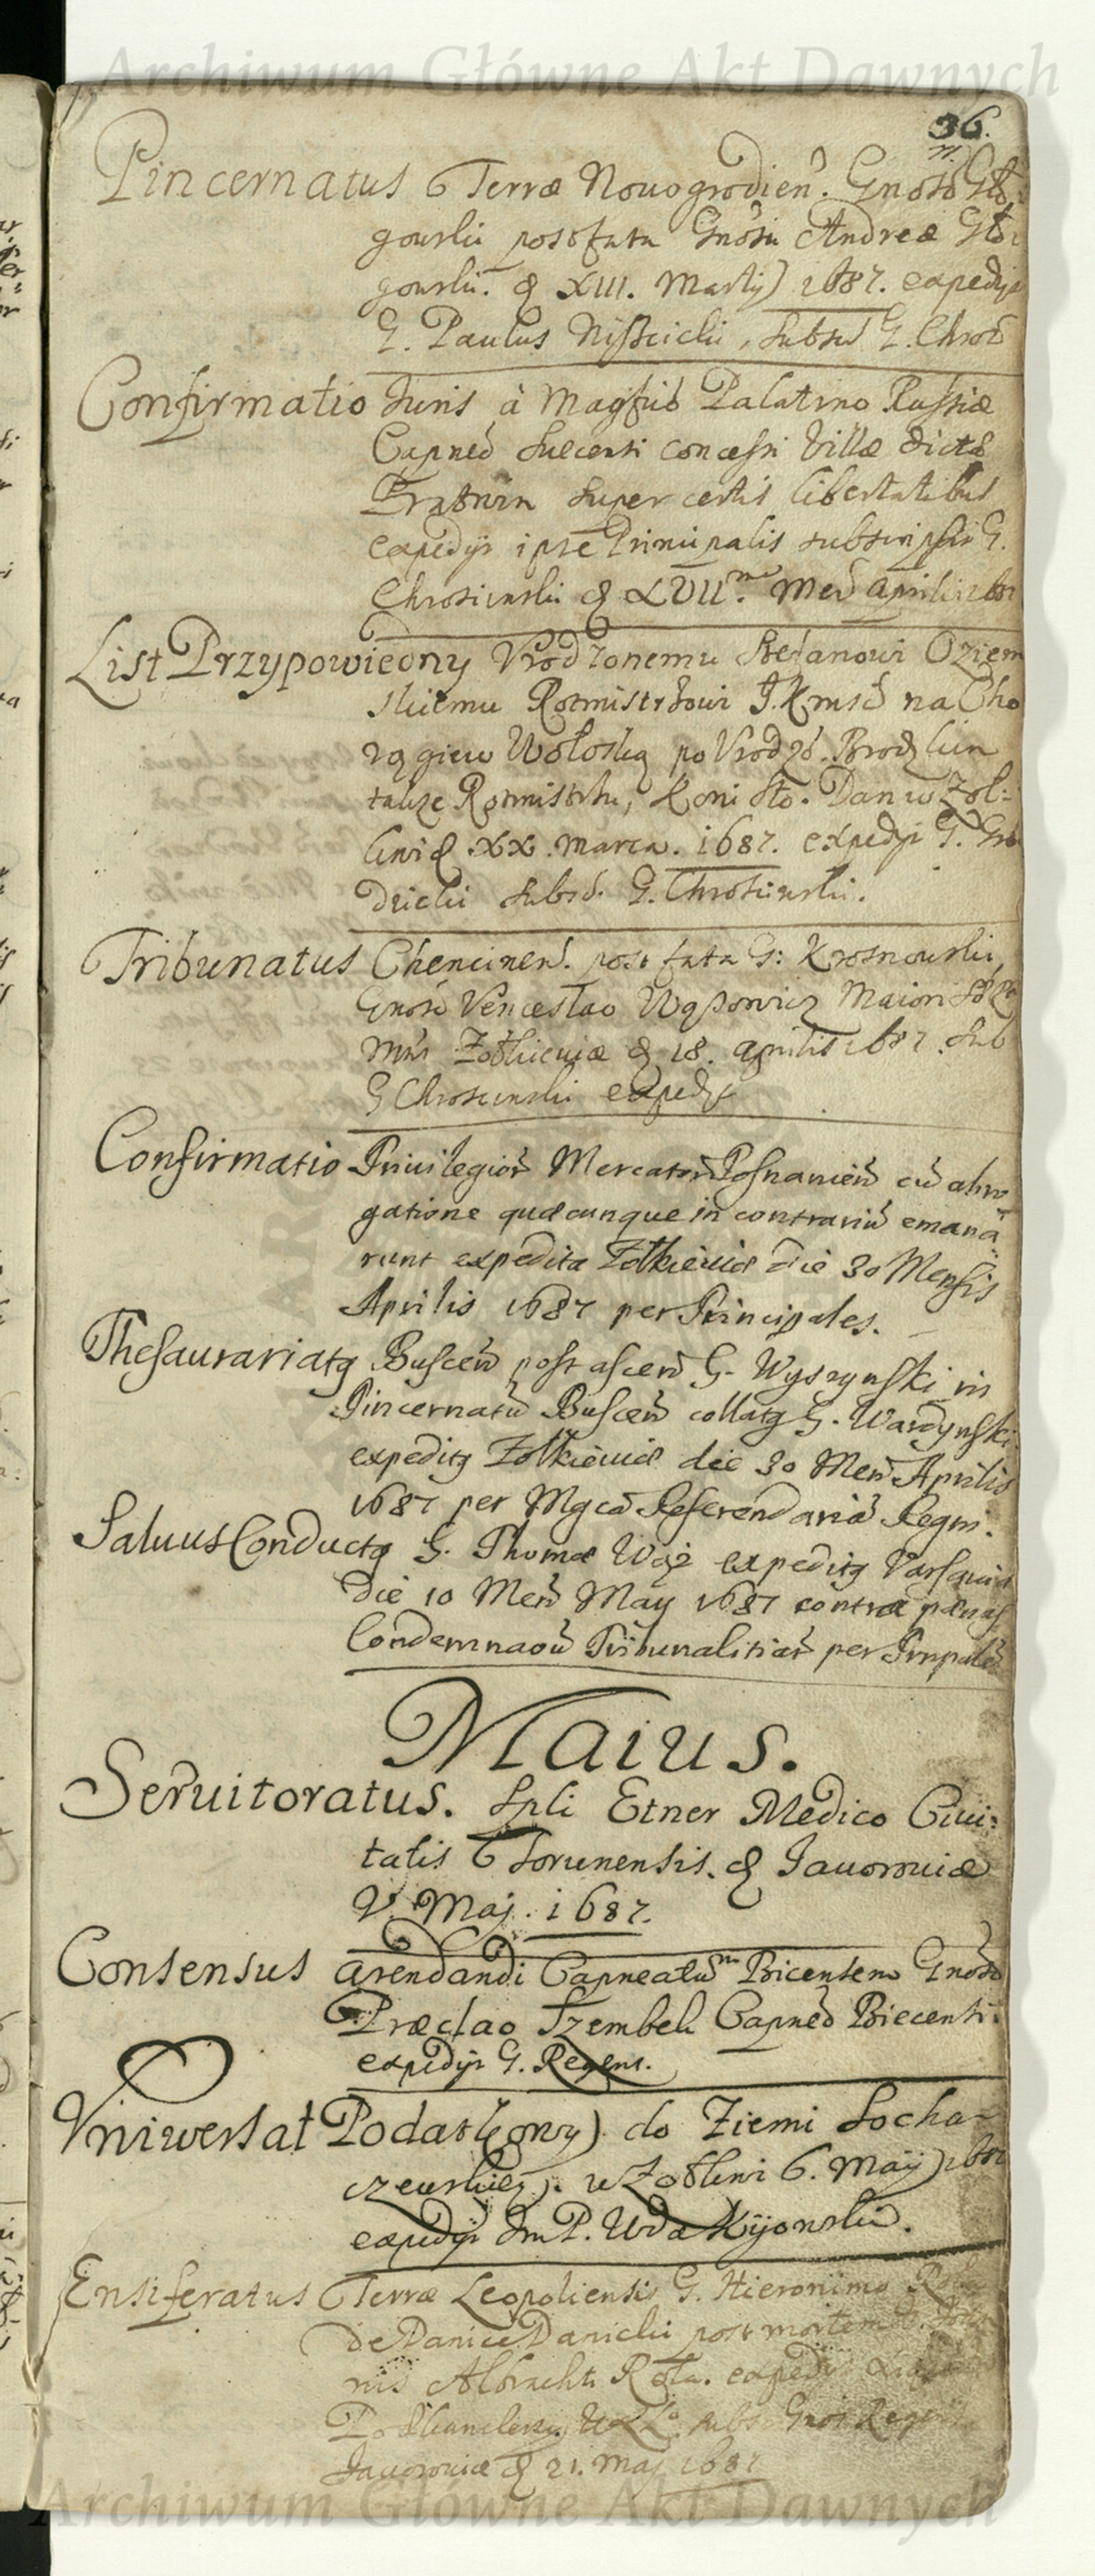 Archiwum Główne Akt Dawnych
36.
Pincernatus Terræ Nouogrodień. Gnoso
gowski post fata Gnosi Andreæ
gowski. d XIII. Martij 1687. expedijt
G. Paulus subsc. G. Chros
Confirmatio Juris à Magfico Palatino Russiæ
Capneo concessi Villæ dictæ
super certis libertatibus
expedijt ipse Principalis subscripsit G.
Chroscinski d XVII.me Mens Aprilis 1687
List Przypowiedny Vrodzonemu Stefanowi Oziem
skiemu Rotmistrzowi J.K.msci na Cho
rągiew Wołoską po Vrodz.
także Rotmistrzu, koni sto. Dan w Żoł:
kwi d XX. marca. 1687. expedijt G.
dzicki subsc. G. Chroscinski.
Tribunatus Chencinen. post fata G: Krosnowski
Gnoso Venceslao Wąsowicz Maiori
Żołkiewiæ d 18. Aprilis 1687. sub
G Chroscinski expedijt
Confirmatio Priuilegior Mercator Posnanień cū abro
gatione quæcunque in contrariū emana
runt expedita Zołkieuiæ die 30 Mensis
Aprilis 1687 per Principales.
Thesaurariatq Buscen post ascen G. Wyszynski in
Pincernatū Buscen collatq G. Wardynski
expeditq Zołkieuiæ die 30 Men Aprilis
1687 per Mgcū Referendariū Regni.
Saluus Conductq G. Thomæ Wąż expeditq Varsauiæ
die 10 Men May 1687 contra pænas
Condemnaoū Tribunalitiar per Prnpales
Maius.
Seruitoratus. Spli Etner Medico Ciui:
tatis Torunensis. d Jauorouiæ
V. Maj. 1687.
Consensus arendandi Capneatum Bicensem Gnoso
Præclao Szembek Capneo Biecensi.
expedijt G. Regens.
Vniwersał Podatkowy do Ziemi Socha-
czewskiey. w Zołkwi 6. Maij 1687
expedijt Jm P. Wda Kijowski.
Ensiferatus Terræ Leopoliensis G. Hieronimo
de Danice Danicki post mortem
nis Albrachti expedijt
Podkanclerzy W X L subs Gnos Regens
Jauorouiæ d 21. Maj 1687
Archiwum Główne Akt Dawnych